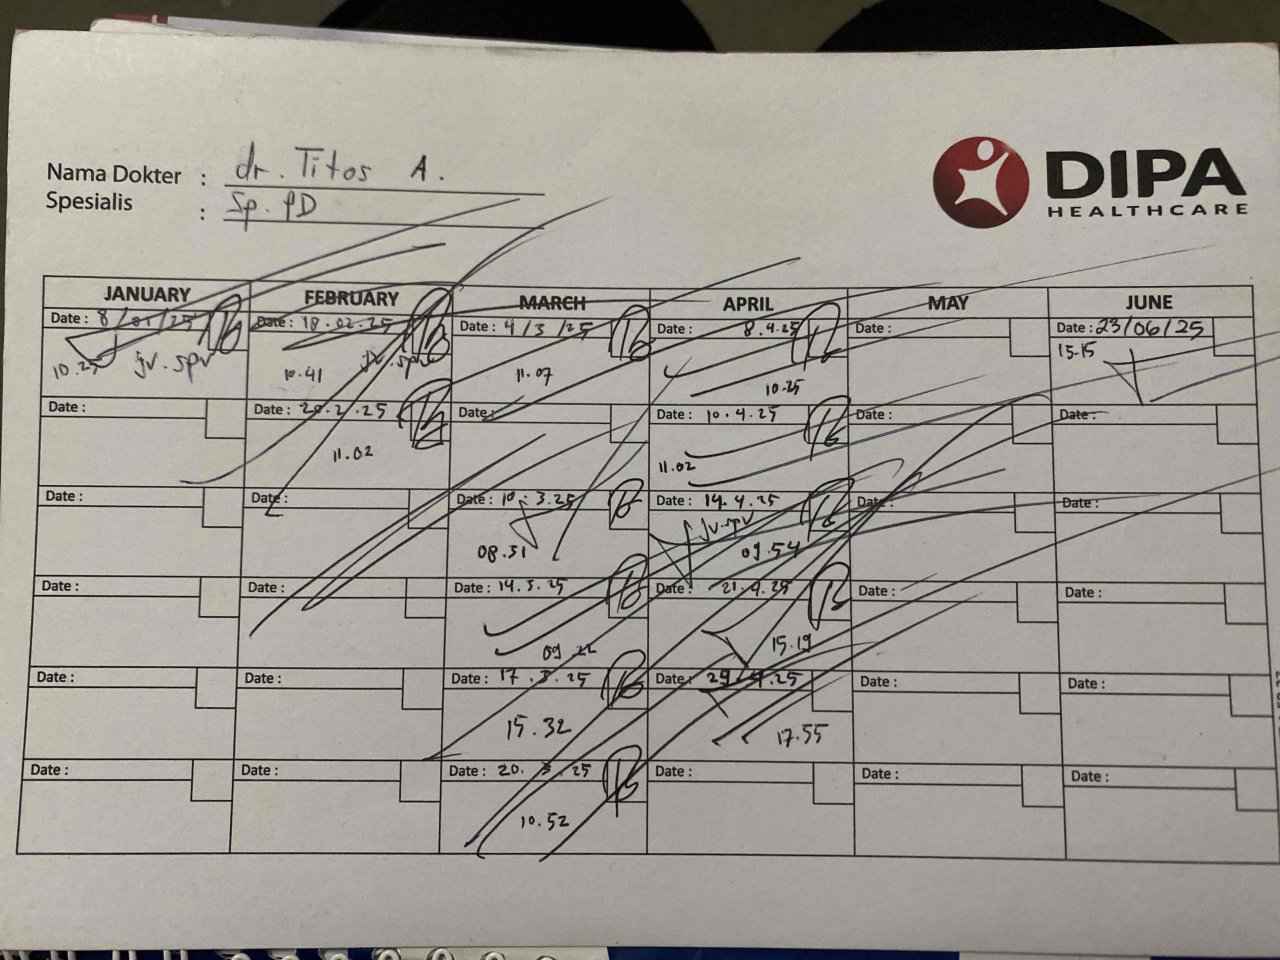 dr. Titos A.
Nama Dokter :
Sp. PD
Spesialis :
DIPA
HEALTHCARE
JANUARY FEBRUARY MARCH APRIL MAY JUNE
Date : 8/01/25 Date : 18.02.25 Date : 4/3/25 Date : 8.4.25 Date : Date : 23/06/25
10.25 jv.spv 10.41 jv.spv 11.07 10.25 15.15
Date : Date : 20.2.25 Date : Date : 10.4.25 Date : Date :
11.02 11.02
Date : Date : Date : 10.3.25 Date : 14.4.25 Date : Date :
08.51 jv.spv 09.54
Date : Date : Date : 14.3.25 Date : 21.4.25 Date : Date :
09 15.19
Date : Date : Date : 17.3.25 Date : 29.4.25 Date : Date :
15.32 17.55
Date : Date : Date : 20.3.25 Date : Date : Date :
10.52